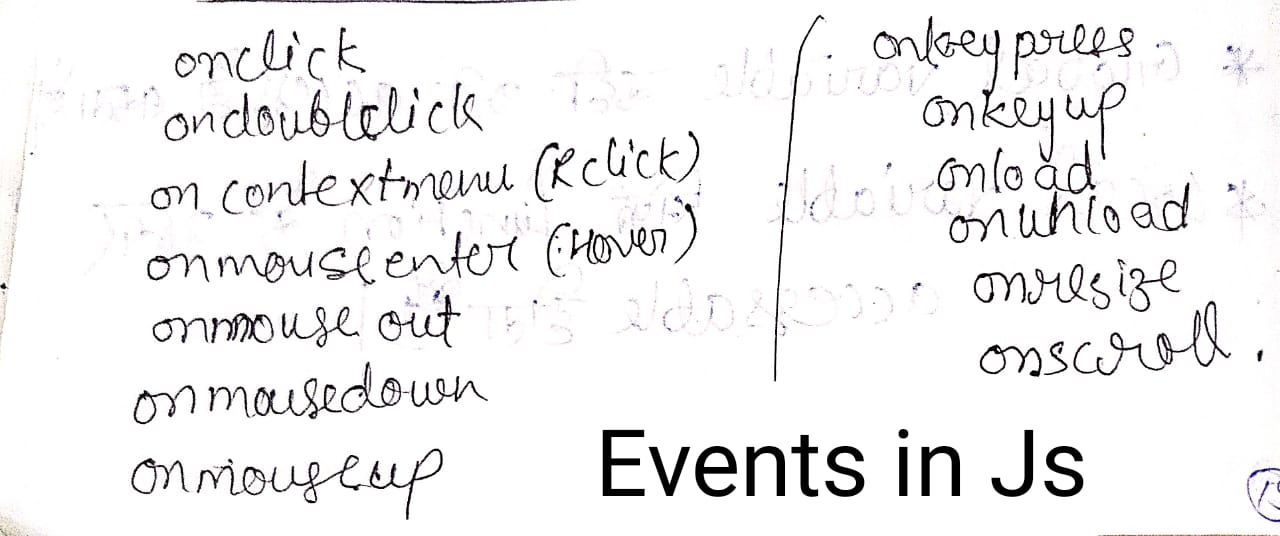 onclick
ondoubleclick
on contextmenu (Rclick)
onmouseenter (Hover)
onmouse out
onmousedown
onmouseup
onkeypress
onkeyup
onload
onunload
onresize
onscroll.
Events in Js